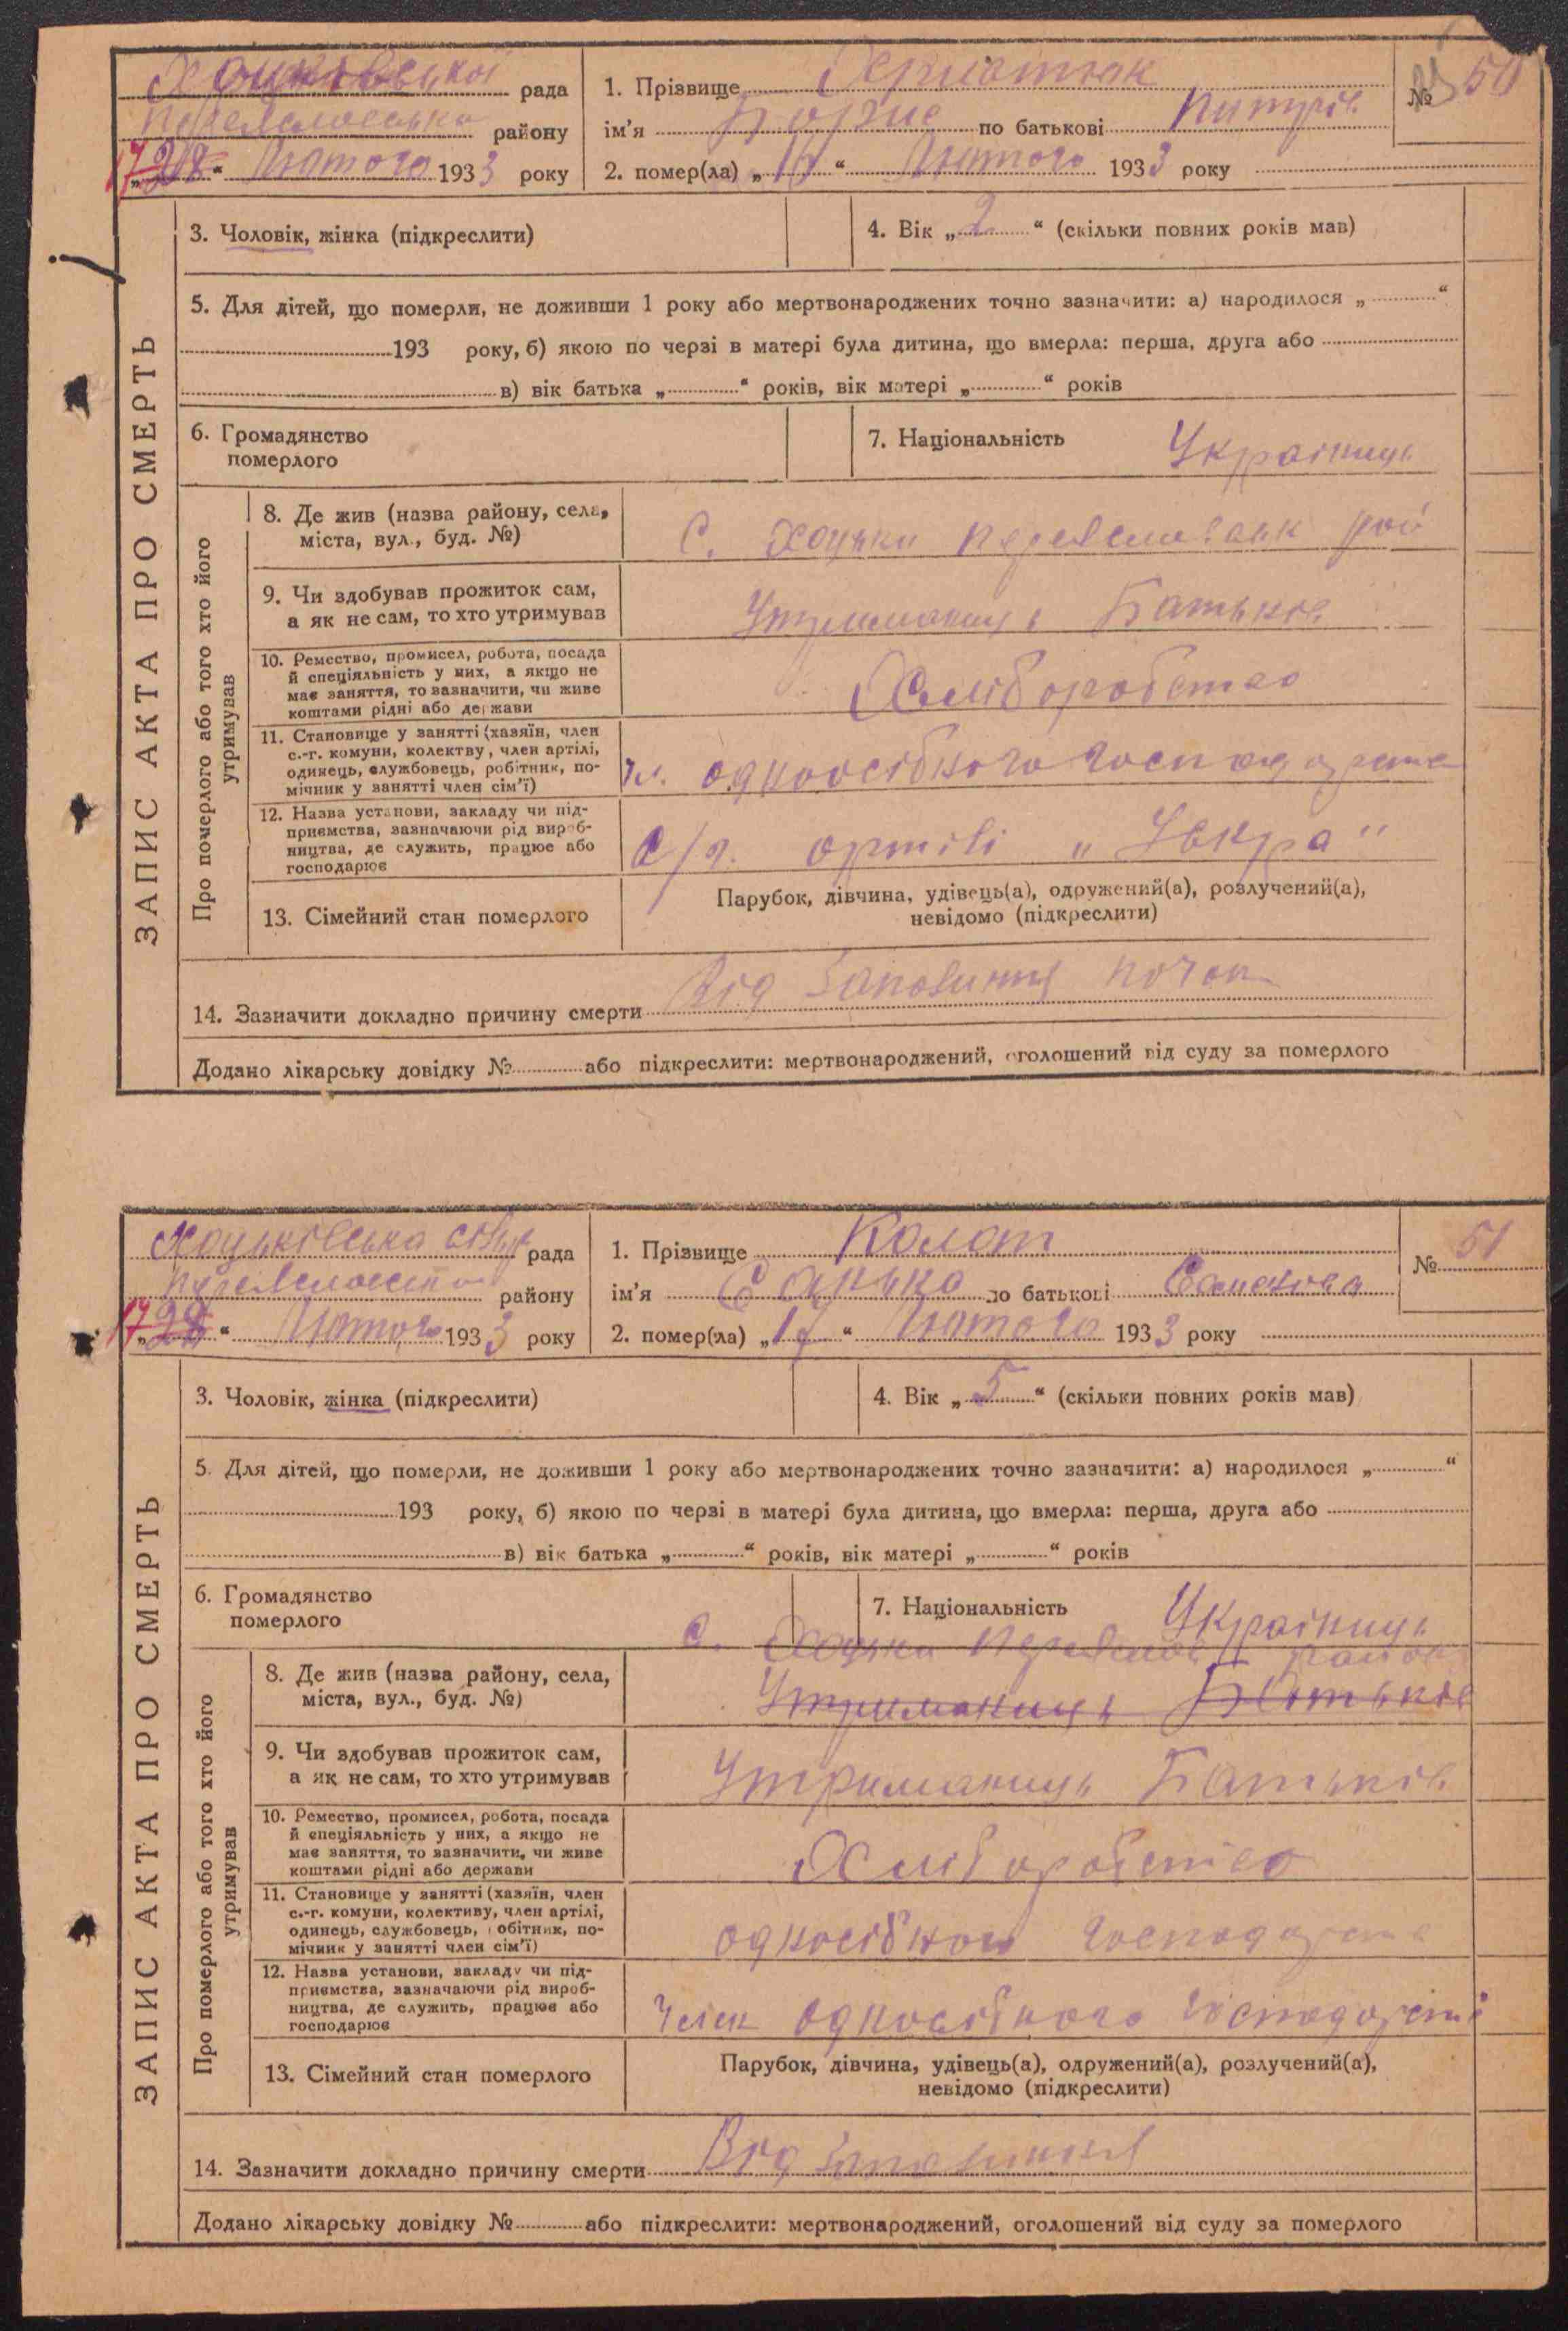 Хоцківської рада
району
17 28 “ Лютого 1933 року
1. Прізвище
ім’я Борис по батькові
2. помер(ла) „ “ Лютого 1933 року
№ 50
3. Чоловік, жінка (підкреслити)
4. Вік „ 2 “ (скільки повних років мав)
5. Для дітей, що померли, не доживши 1 року або мертвонароджених точно зазначити: а) народилося „ “
193 року, б) якою по черзі в матері була дитина, що вмерла: перша, друга або
в) вік батька „ “ років, вік матері „ “ років
6. Громадянство
померлого
7. Національність Українець
ЗАПИС АКТА ПРО СМЕРТЬ
Про померлого або того хто його
утримував
8. Де жив (назва району, села,
міста, вул., буд. №)
С. Хоцьки Переяславськ рай
9. Чи здобував прожиток сам,
а як не сам, то хто утримував
Утриманець Батьків
10. Ремество, промисел, робота, посада
й спеціяльність у них, а якщо не
має заняття, то зазначити, чи живе
коштами рідні або держави
Хліборобство
11. Становище у занятті (хазяїн, член
с.-г. комуни, колектву, член артілі,
одинець, службовець, робітник, по-
мічник у занятті член сім’ї)
чл. одноосібного господарства
12. Назва установи, закладу чи під-
приємства, зазначаючи рід вироб-
ництва, де служить, працює або
господарює
с/г. артілі „Іскра"
13. Сімейний стан померлого
Парубок, дівчина, удівець(а), одружений(а), розлучений(а),
невідомо (підкреслити)
14. Зазначити докладно причину смерти Від запалення нирок
Додано лікарську довідку № або підкреслити: мертвонароджений, оголошений від суду за померлого
Хоцьківська сільр рада
району
17 28 “ Лютого 1933 року
1. Прізвище Калат
ім’я по батькові
2. помер(ла) „ 17 “ Лютого 1933 року
№ 51
3. Чоловік, жінка (підкреслити)
4. Вік „ 5 “ (скільки повних років мав)
5. Для дітей, що померли, не доживши 1 року або мертвонароджених точно зазначити: а) народилося „ “
193 року, б) якою по черзі в матері була дитина, що вмерла: перша, друга або
в) вік батька „ “ років, вік матері „ “ років
6. Громадянство
померлого
7. Національність Українець
ЗАПИС АКТА ПРО СМЕРТЬ
Про померлого або того хто його
утримував
8. Де жив (назва району, села,
міста, вул., буд. №)
с. Хоцьки району
Утриманець Батьків
9. Чи здобував прожиток сам,
а як не сам, то хто утримував
Утриманець Батьків
10. Ремество, промисел, робота, посада
й спеціяльність у них, а якщо не
має заняття, то зазначити, чи живе
коштами рідні або держави
Хліборобство
11. Становище у занятті (хазяїн, член
с.-г. комуни, колективу, член артілі,
одинець, службовець, робітник, по-
мічник у занятті член сім’ї)
односібного господарства
12. Назва установи, закладу чи під-
приємства, зазначаючи рід вироб-
ництва, де служить, працює або
господарює
Член односібного господарства
13. Сімейний стан померлого
Парубок, дівчина, удівець(а), одружений(а), розлучений(а),
невідомо (підкреслити)
14. Зазначити докладно причину смерти Від запалення
Додано лікарську довідку № або підкреслити: мертвонароджений, оголошений від суду за померлого